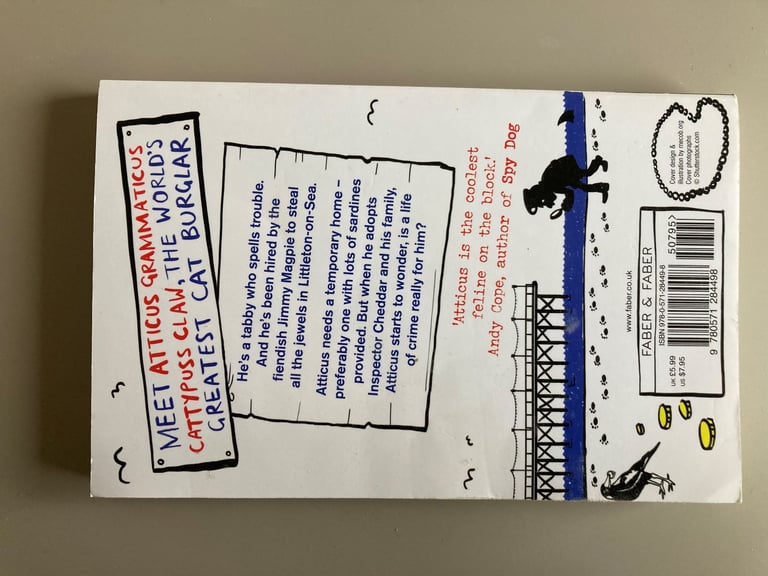 MEET ATTICUS GRAMMATICUS
CATTYPUSS CLAW, THE WORLD'S
GREATEST CAT BURGLAR
He's a tabby who spells trouble.
And he's been hired by the
fiendish Jimmy Magpie to steal
all the jewels in Littleton-on-Sea.
Atticus needs a temporary home –
preferably one with lots of sardines
provided. But when he adopts
Inspector Cheddar and his family,
Atticus starts to wonder, is a life
of crime really for him?
'Atticus is the coolest
feline on the block.'
Andy Cope, author of Spy Dog
www.faber.co.uk
FABER & FABER
ISBN 978-0-571-28449-8
50795>
9 780571 284498
UK £5.99
US $7.95
Cover design &
illustration by mecob.org
Cover photographs
© Shutterstock.com